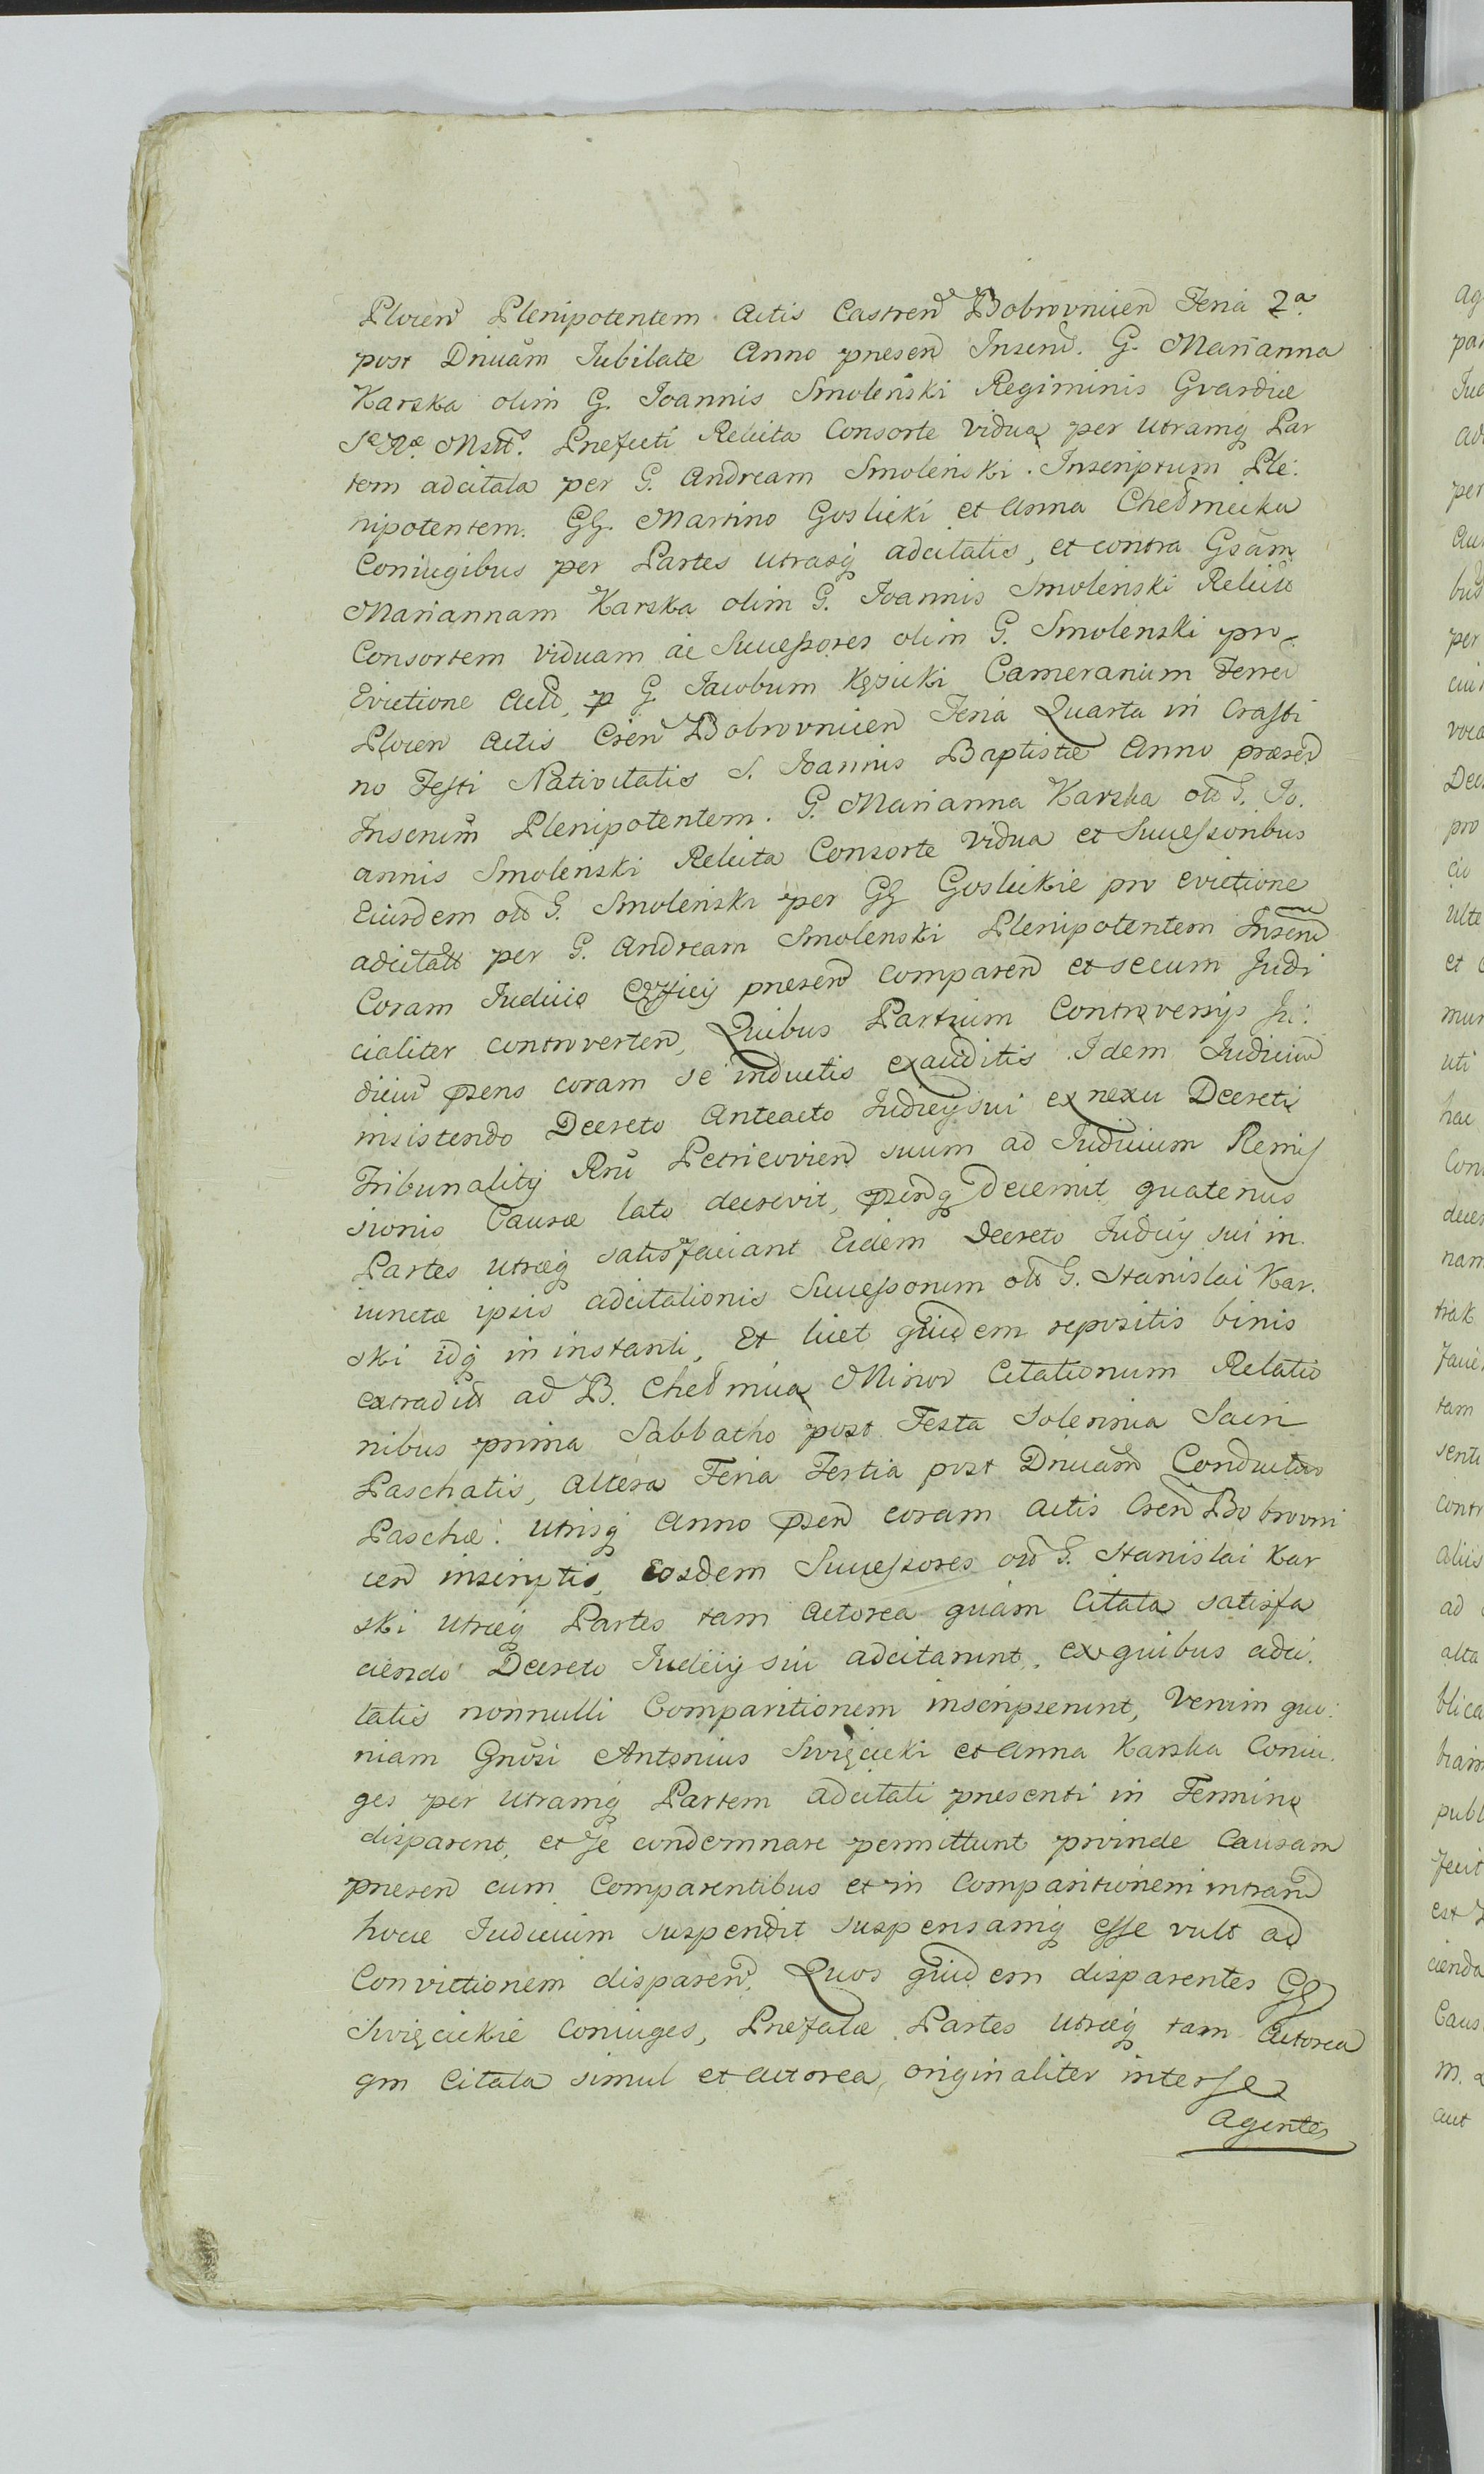 Plocen Plenipotentem Actis Castren Bobrovnicen Feria 2a
post Dnicam Jubilate Anno presen Inserib. G. Marianna
Karska olim G. Joannis Smolenski Regiminis Gvardiæ
Præfecti Relicta Consorte vidua per utramq Par
tem adcitata per G. Andream Smolenski Inscriptum Ple:
nipotentem. GG. Martino Goslicki et Anna Chełmicka
Coniugibus per Partes utrasq adcitatis, et contra Gsam
Mariannam Karska olim G. Joannis Smolenski Relict
Consortem viduam ac Successores olim G. Smolenski pro
Evictione Acto, p G. Jacobum Kęsicki Camerarium Terres
Plocen Actis Cren Bobrovnicen Feria Quarta in Crasti
no Festi Nativitatis S. Joannis Baptistæ Anno præsen
Inscriptm Plenipotentem. G. Marianna Karska olt G. Jo.
annis Smolenski Relicta Consorte vidua et Successoribus
Eiusdem olt G. Smolenski per GG Goslickie pro evictione
adcitatt per G. Andream Smolenski Plenipotentem
Coram Judicio Officij presen comparen et secum Judi
cialiter controverten, Quibus Partium Controversijs Ju:
diciu psens coram se inductis exauditis Idem Judicium
insistendo Decreto Anteacto Judicij sui ex nexu Decreti
Tribunalitij Rni Petricovien suum ad Judicium Remis
sionis Causæ lato decrevit, psentq decernit quatenus
Partes utræq satisfaciant Eidem Decreto Judicij sui in
iunctæ ipsis adcitationis Successorum olt G. Stanislai Kar.
ski idq in instanti, Et licet quidem repositis binis
extradit ad B. Chełmica Minor Citationum Relatio
nibus prima Sabbatho post Festa Solennia Sacri
Paschatis, altera Feria Tertia post Dnicam Conductus
Paschæ: utrisq Anno psen coram actis Cren Bobrovni
cen inscriptis, Eosdem Successores olt G. Stanislai Kar
ski utræq Partes tam Actorea quam Citata satisfa
ciendo Decreto Judicij sui adcitarunt, ex quibus adci.
tatis nonnulli Comparitionem inscripserunt, Verum quo:
niam Gnosi Antonius Swięcicki et Anna Karska Coniu.
ges per utramq Partem adcitati presenti in Termino
disparent, et se condemnare permittunt proinde Causam
presen cum Comparentibus et in Comparitionem intran
hocce Judicium suspendit suspensamq esse vult ad
Convictionem disparen, Quos quidem disparentes GG
Swięcickie Coniuges, Prefatæ Partes utræq tam Actorea
qm Citata simul et actorea, originaliter inter se
Agentes